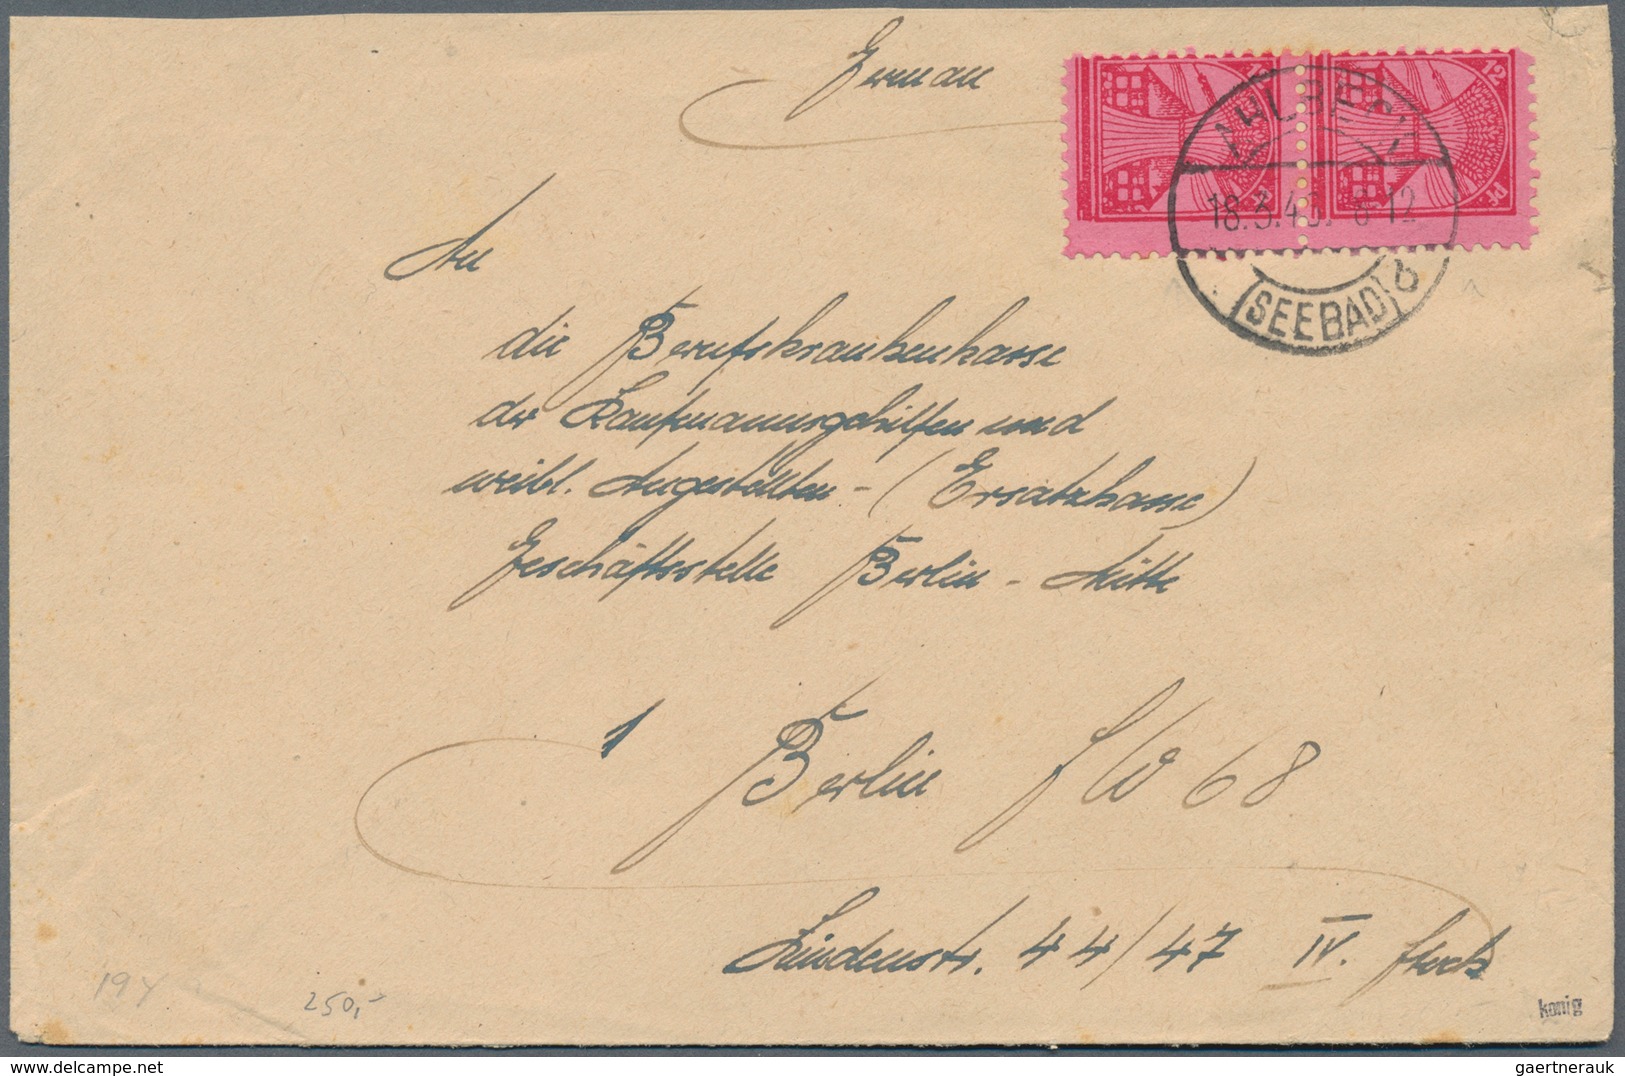 German
12
12
Pf
AHLBECK
18.3.4 8-12
SEEBAD
b
An
die Berufskrankenkasse
der Kaufmannsgehilfen und
weibl. Angestellten - (Ersatzkasse)
Geschäftsstelle Berlin - Mitte
1 Berlin SW 68
Lindenstr. 44/47 IV. Stock
19y
250,-
konig
gaertnerauk